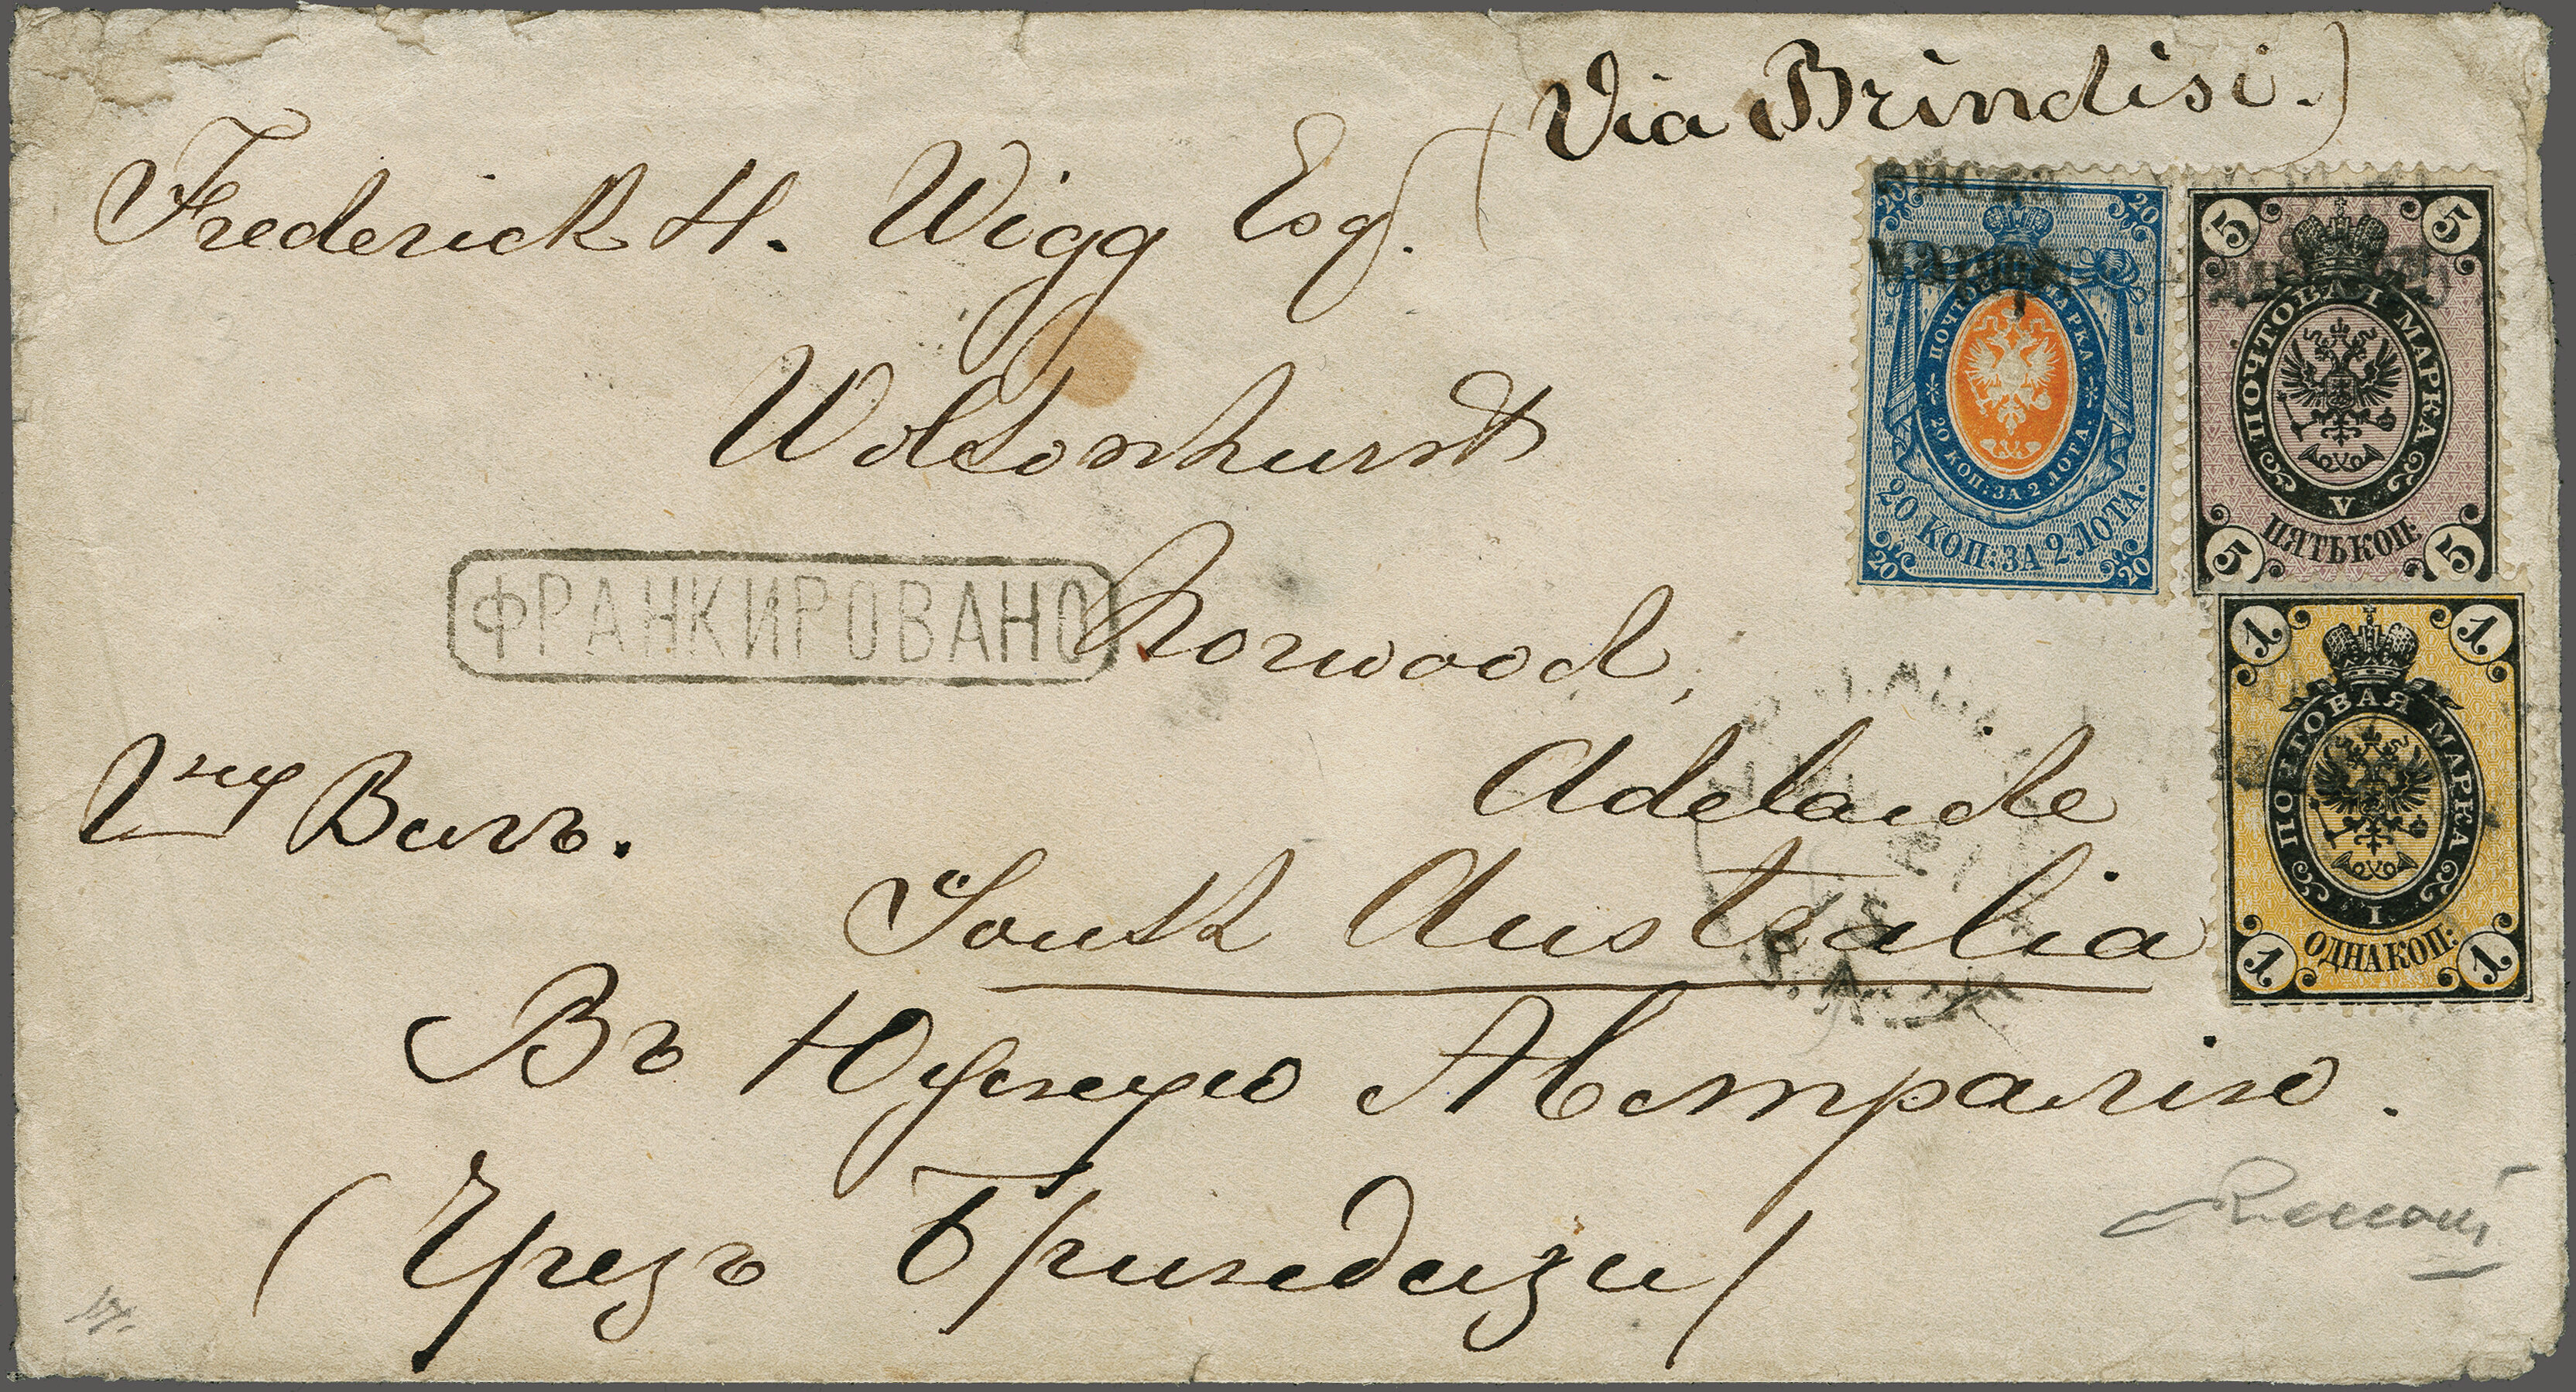 (Via Brindisi.)
Frederick H. Wigg Esq.
Woltonhurst
ФРАНКИРОВАНО
Norwood,
Adelaide
South Australia
Въ Южную Австралію.
(Чрезъ Бриндизи)
20 20
ПОЧТОВАЯ МАРКА
20 КОП: ЗА 2 ЛОТА.
20 КОП: ЗА 2 ЛОТА.
20 20
5 5
ПОЧТОВАЯ МАРКА
V
ПЯТЬ КОП:
5 5
1 1
ПОЧТОВАЯ МАРКА
I
ОДНА КОП:
1 1